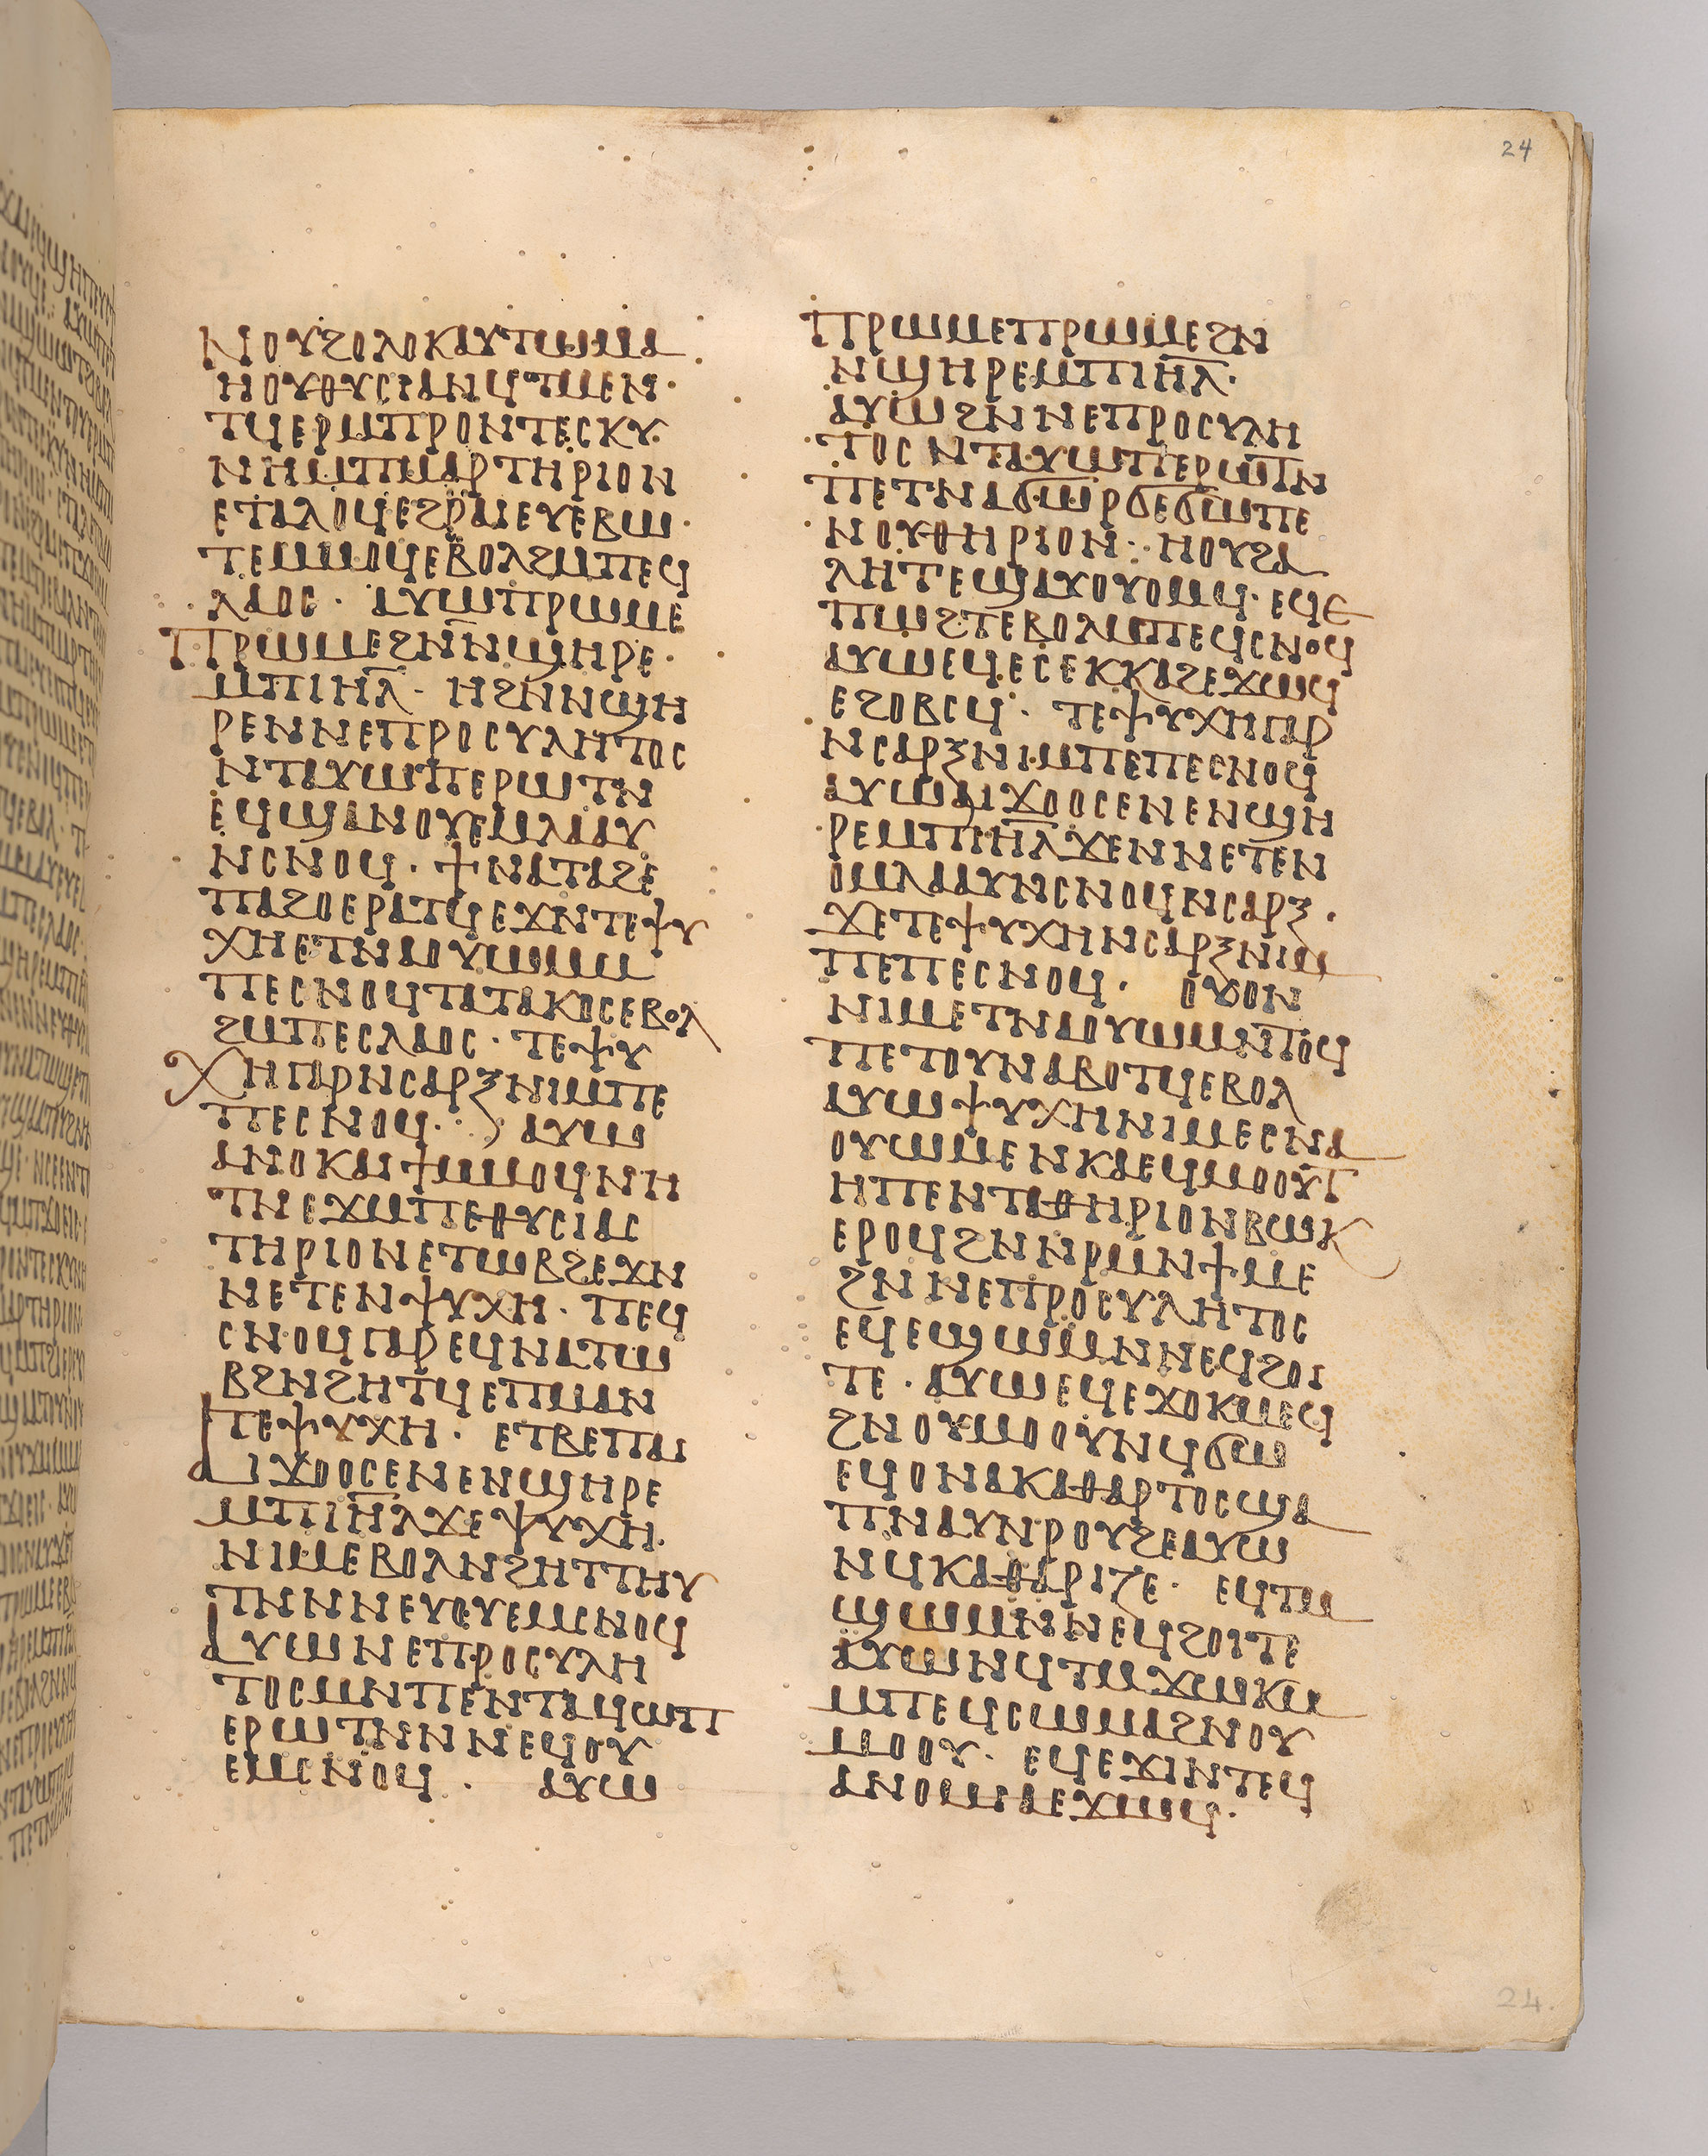 24
ⲚⲞⲨϨⲞⲖⲞⲔⲀⲨⲦⲰⲘⲀ
ⲎⲞⲨⲐⲨⲤⲒⲀⲚϤⲦⲘⲈⲚ·
ⲦϤⲈⲢⲘⲠⲢⲞⲚⲦⲈⲤⲔⲨ
ⲚⲎⲘⲠⲘⲀⲢⲦⲎⲢⲒⲞⲚ
ⲈⲦⲀⲖⲞϤⲈϨⲢⲀⲒⲈⲨⲈⲂⲰ·
ⲦⲈⲘⲘⲞϤⲈⲂⲞⲖϨⲘⲠⲈϤ
ⲖⲀⲞⲤ· ⲀⲨⲰⲠⲢⲰⲘⲈ
ⲠⲢⲰⲘⲈϨⲚⲚϢⲎⲢⲈ·
ⲘⲠⲒⲎ̅Ⲗ̅· ⲎϨⲚⲚϢⲎ
ⲢⲈⲚⲚⲈⲠⲢⲞⲤⲨⲖⲎⲦⲞⲤ
ⲚⲦⲀⲨⲰⲠⲈⲢⲰⲦⲚ
ⲈϤϢⲀⲚⲞⲨⲈⲘⲖⲀⲀⲨ
ⲚⲤⲚⲞϤ· ϮⲚⲀⲦⲀϨⲈ
ⲠⲀϨⲞⲈⲢⲀⲦϤⲈϪⲚⲦⲈⲮⲨ
ⲬⲎⲈⲦⲚⲀⲞⲨⲰⲘⲘ
ⲠⲈⲤⲚⲞϤⲦⲀⲦⲀⲔⲞⲤⲈⲂⲞⲖ
ϨⲘⲠⲈⲤⲖⲀⲞⲤ· ⲦⲈⲮⲨ
ⲬⲎⲄⲀⲢⲚⲤⲀⲢⲜⲚⲒⲘⲠⲈ
ⲠⲈⲤⲚⲞϤ· ⲀⲨⲰ
ⲀⲚⲞⲔⲀⲒϮⲘⲘⲞϤⲚⲎ
ⲦⲚⲈϪⲘⲠⲈⲐⲨⲤⲒⲀⲤ
ⲦⲎⲢⲒⲞⲚⲈⲦⲰⲂϨⲈϪⲚ
ⲚⲈⲦⲈⲚⲮⲨⲬⲎ· ⲠⲈϤ
ⲤⲚⲞϤⲄⲀⲢⲈϤⲚⲀⲦⲰ
ⲂϨⲚϨⲎⲦϤⲈⲠⲘⲀⲚ
ⲦⲈⲮⲨⲬⲎ· ⲈⲦⲂⲈⲠⲀⲒ
ⲀⲒϪⲞⲞⲤⲈⲚⲈⲚϢⲎⲢⲈ
ⲘⲠⲒⲎ̅Ⲗ̅ϪⲈⲮⲨⲬⲎ
ⲚⲒⲘⲈⲂⲞⲖⲚϨⲎⲦⲦⲎⲨ
ⲦⲚⲚⲚⲈⲨⲞⲨⲈⲘⲤⲚⲞϤ
ⲀⲨⲰⲚⲈⲠⲢⲞⲤⲨⲖⲎ
ⲦⲞⲤⲘⲚⲠⲈⲚⲦⲀϤⲰⲠ
ⲈⲢⲰⲦⲚⲚⲚⲈϤⲞⲨ
ⲈⲘⲤⲚⲞϤ· ⲀⲨⲰ
ⲠⲢⲰⲘⲈⲠⲢⲰⲘⲈϨⲚ
ⲚϢⲎⲢⲈⲘⲠⲒⲎ̅Ⲗ̅·
ⲀⲨⲰϨⲚⲚⲈⲠⲢⲞⲤⲨⲖⲎ
ⲦⲞⲤⲚⲦⲀⲨⲰⲠⲈⲢⲰⲦⲚ
ⲠⲈⲦⲚⲀϬⲰⲢϬⲈϬⲰⲠⲈ
ⲚⲞⲨⲐⲎⲢⲒⲞⲚ· ⲎⲞⲨϨⲀ
ⲖⲎⲦⲈϢⲀⲨⲞⲨⲞⲘϤ· ⲈϤⲈ
ⲠⲰϨⲦⲈⲂⲞⲖⲘⲠⲈϤⲤⲚⲞϤ
ⲀⲨⲰⲈϤⲈⲤⲈⲔⲔⲀϨⲈϪⲰϤ
ⲈϨⲞⲂⲤϤ· ⲦⲈⲮⲨⲬⲎⲄⲀⲢ
ⲚⲤⲀⲢⲜⲚⲒⲘⲠⲈⲠⲈⲤⲚⲞϤ
ⲀⲨⲰⲀⲒϪⲞⲞⲤⲈⲚⲈⲚϢⲎ
ⲢⲈⲘⲠⲒⲎ̅Ⲗ̅ϪⲈⲚⲚⲈⲦⲈⲚ
ⲞⲘⲖⲀⲀⲨⲚⲤⲚⲞϤⲚⲤⲀⲢⲜ·
ϪⲈⲦⲈⲮⲨⲬⲎⲚⲤⲀⲢⲜⲚⲒⲘ
ⲠⲈⲠⲈⲤⲚⲞϤ· ⲞⲨⲞⲚ
ⲚⲒⲘⲈⲦⲚⲀⲞⲨⲰⲘⲚⲦⲞϤ
ⲠⲈⲦⲞⲨⲚⲀⲂⲞⲦϤⲈⲂⲞⲖ
ⲀⲨⲰⲮⲨⲬⲎⲚⲒⲘⲈⲤⲚⲀ
ⲞⲨⲰⲘⲈⲚⲔⲀⲈϤⲘⲞⲞⲨⲦ
ⲎⲠⲈⲚⲦⲀⲐⲎⲢⲒⲞⲚⲂⲰⲔ
ⲈⲢⲞϤϨⲚⲚⲢⲘⲚϮⲘⲈ
ϨⲚⲚⲈⲠⲢⲞⲤⲨⲖⲎⲦⲞⲤ
ⲈϤⲈϢⲰⲘⲚⲚⲈϤϨⲞⲒ
ⲦⲈ· ⲀⲨⲰⲈϤⲈϪⲞⲔⲘⲈϤ
ϨⲚⲞⲨⲘⲞⲞⲨⲚϤϬⲰ
ⲈϤⲞⲚⲀⲔⲀⲐⲀⲢⲦⲞⲤϢⲀ
ⲠⲚⲀⲨⲚⲢⲞⲨϨⲈⲀⲨⲰ
ⲚϤⲔⲀⲐⲀⲢⲒⲌⲈ· ⲈϤⲦⲘ
ϢⲰⲘⲚⲚⲈϤϨⲞⲒⲦⲈ
ⲀⲨⲰⲚϤⲦⲘϪⲰⲔⲘ
ⲘⲠⲈϤⲤⲰⲘⲀϨⲚⲞⲨ
ⲘⲞⲞⲨ· ⲈϤⲈϪⲒⲚⲦⲈϤ
ⲀⲚⲞⲘⲒⲀⲈϪⲰϤ·
24.